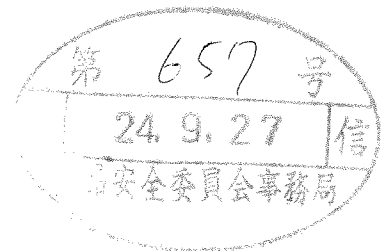 第 657 号
24.9.27 信
安全委員会事務局